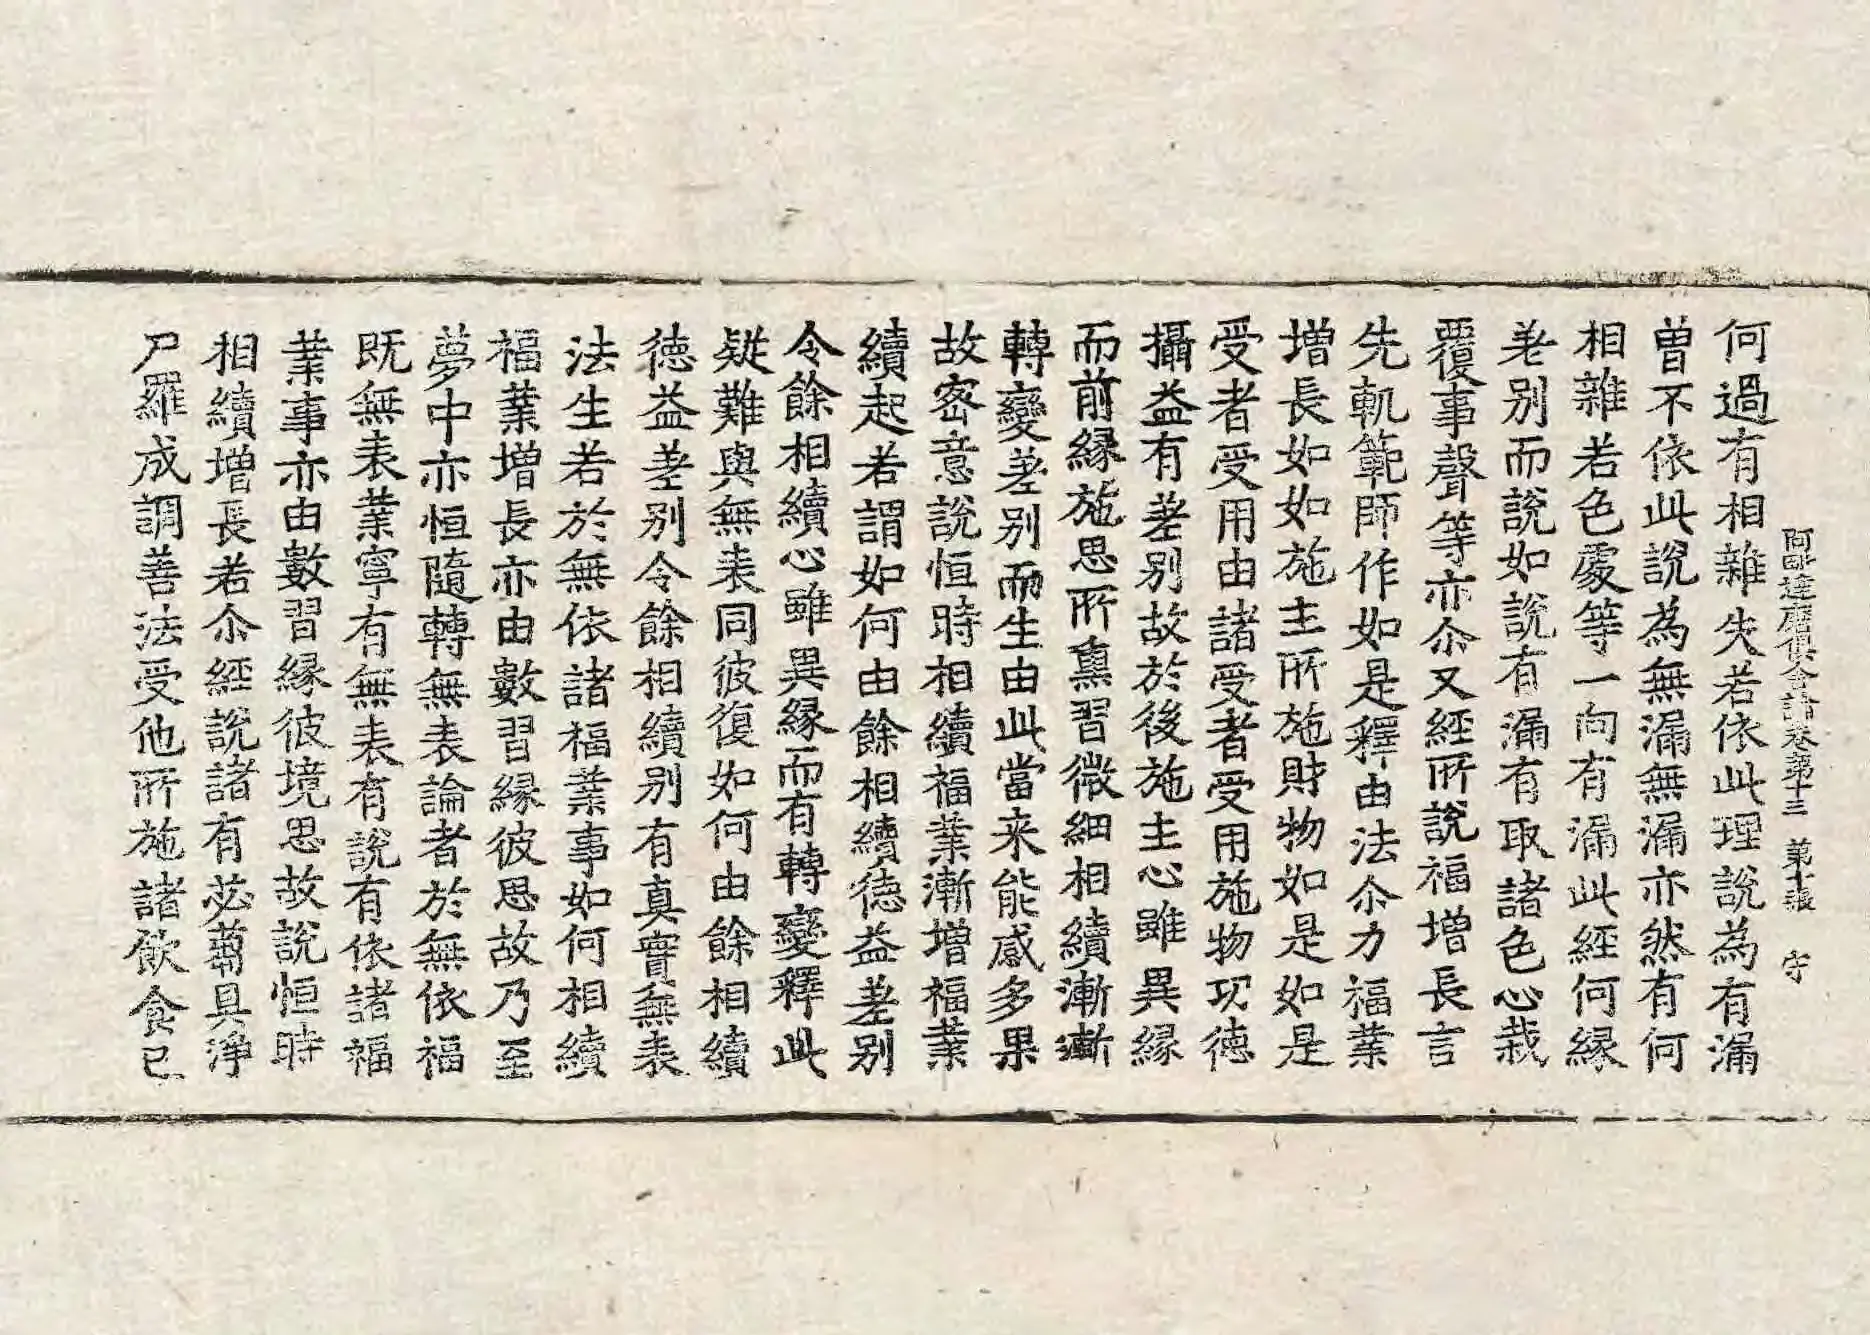 阿毗達磨俱舍論卷第十三 第十張 守
何過有相雜失若依此理說為有漏
曽不依此說為無漏無漏亦然有何
相雜若色處等一向有漏此經何縁
差別而說如說有漏有取諸色心栽
覆事聲等亦尒又經所說福增長言
先軌範師作如是釋由法尒力福業
增長如如施主所施財物如是如是
受者受用由諸受者受用施物功德
攝益有差別故於後施主心雖異縁
而前縁施思所熏習微細相續漸漸
轉變差別而生由此當来能感多果
故密意說恒時相續福業漸增福業
續起若謂如何由餘相續德益差別
令餘相續心雖異縁而有轉變釋此
疑難與無表同彼復如何由餘相續
德益差別令餘相續別有真實無表
法生若於無依諸福業事如何相續
福業增長亦由數習縁彼思故乃至
夢中亦恒隨轉無表論者於無依福
既無表業寧有無表有說有依諸福
業事亦由數習縁彼境思故說恒時
相續增長若尒經說諸有苾蒭具淨
尸羅成調善法受他所施諸飲食已